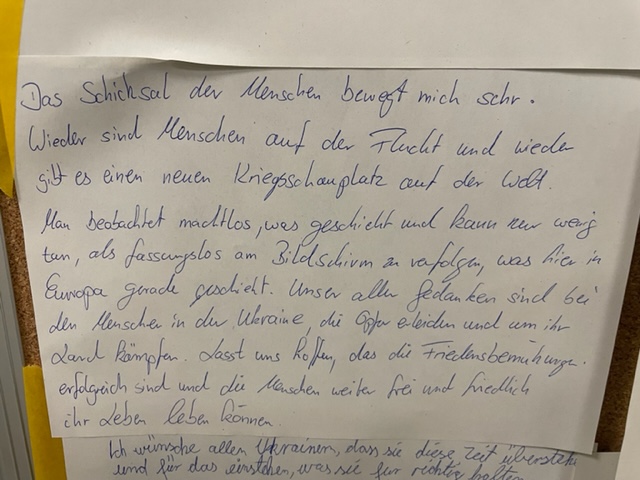 Das Schicksal der Menschen bewegt mich sehr.
Wieder sind Menschen auf der Flucht und wieder
gibt es einen neuen Kriegsschauplatz auf der Welt.
Man beobachtet machtlos, was geschieht und kann nur wenig
tun, als fassungslos am Bildschirm zu verfolgen, was hier in
Europa gerade geschieht. Unser aller Gedanken sind bei
den Menschen in der Ukraine, die Opfer erleiden und um ihr
Land kämpfen. Lasst uns hoffen, das die Friedensbemühungen
erfolgreich sind und die Menschen weiter frei und friedlich
ihr Leben leben können.
Ich wünsche allen Ukrainern, dass sie diese Zeit überstehen
und für das einstehen, was sie für richtig halten